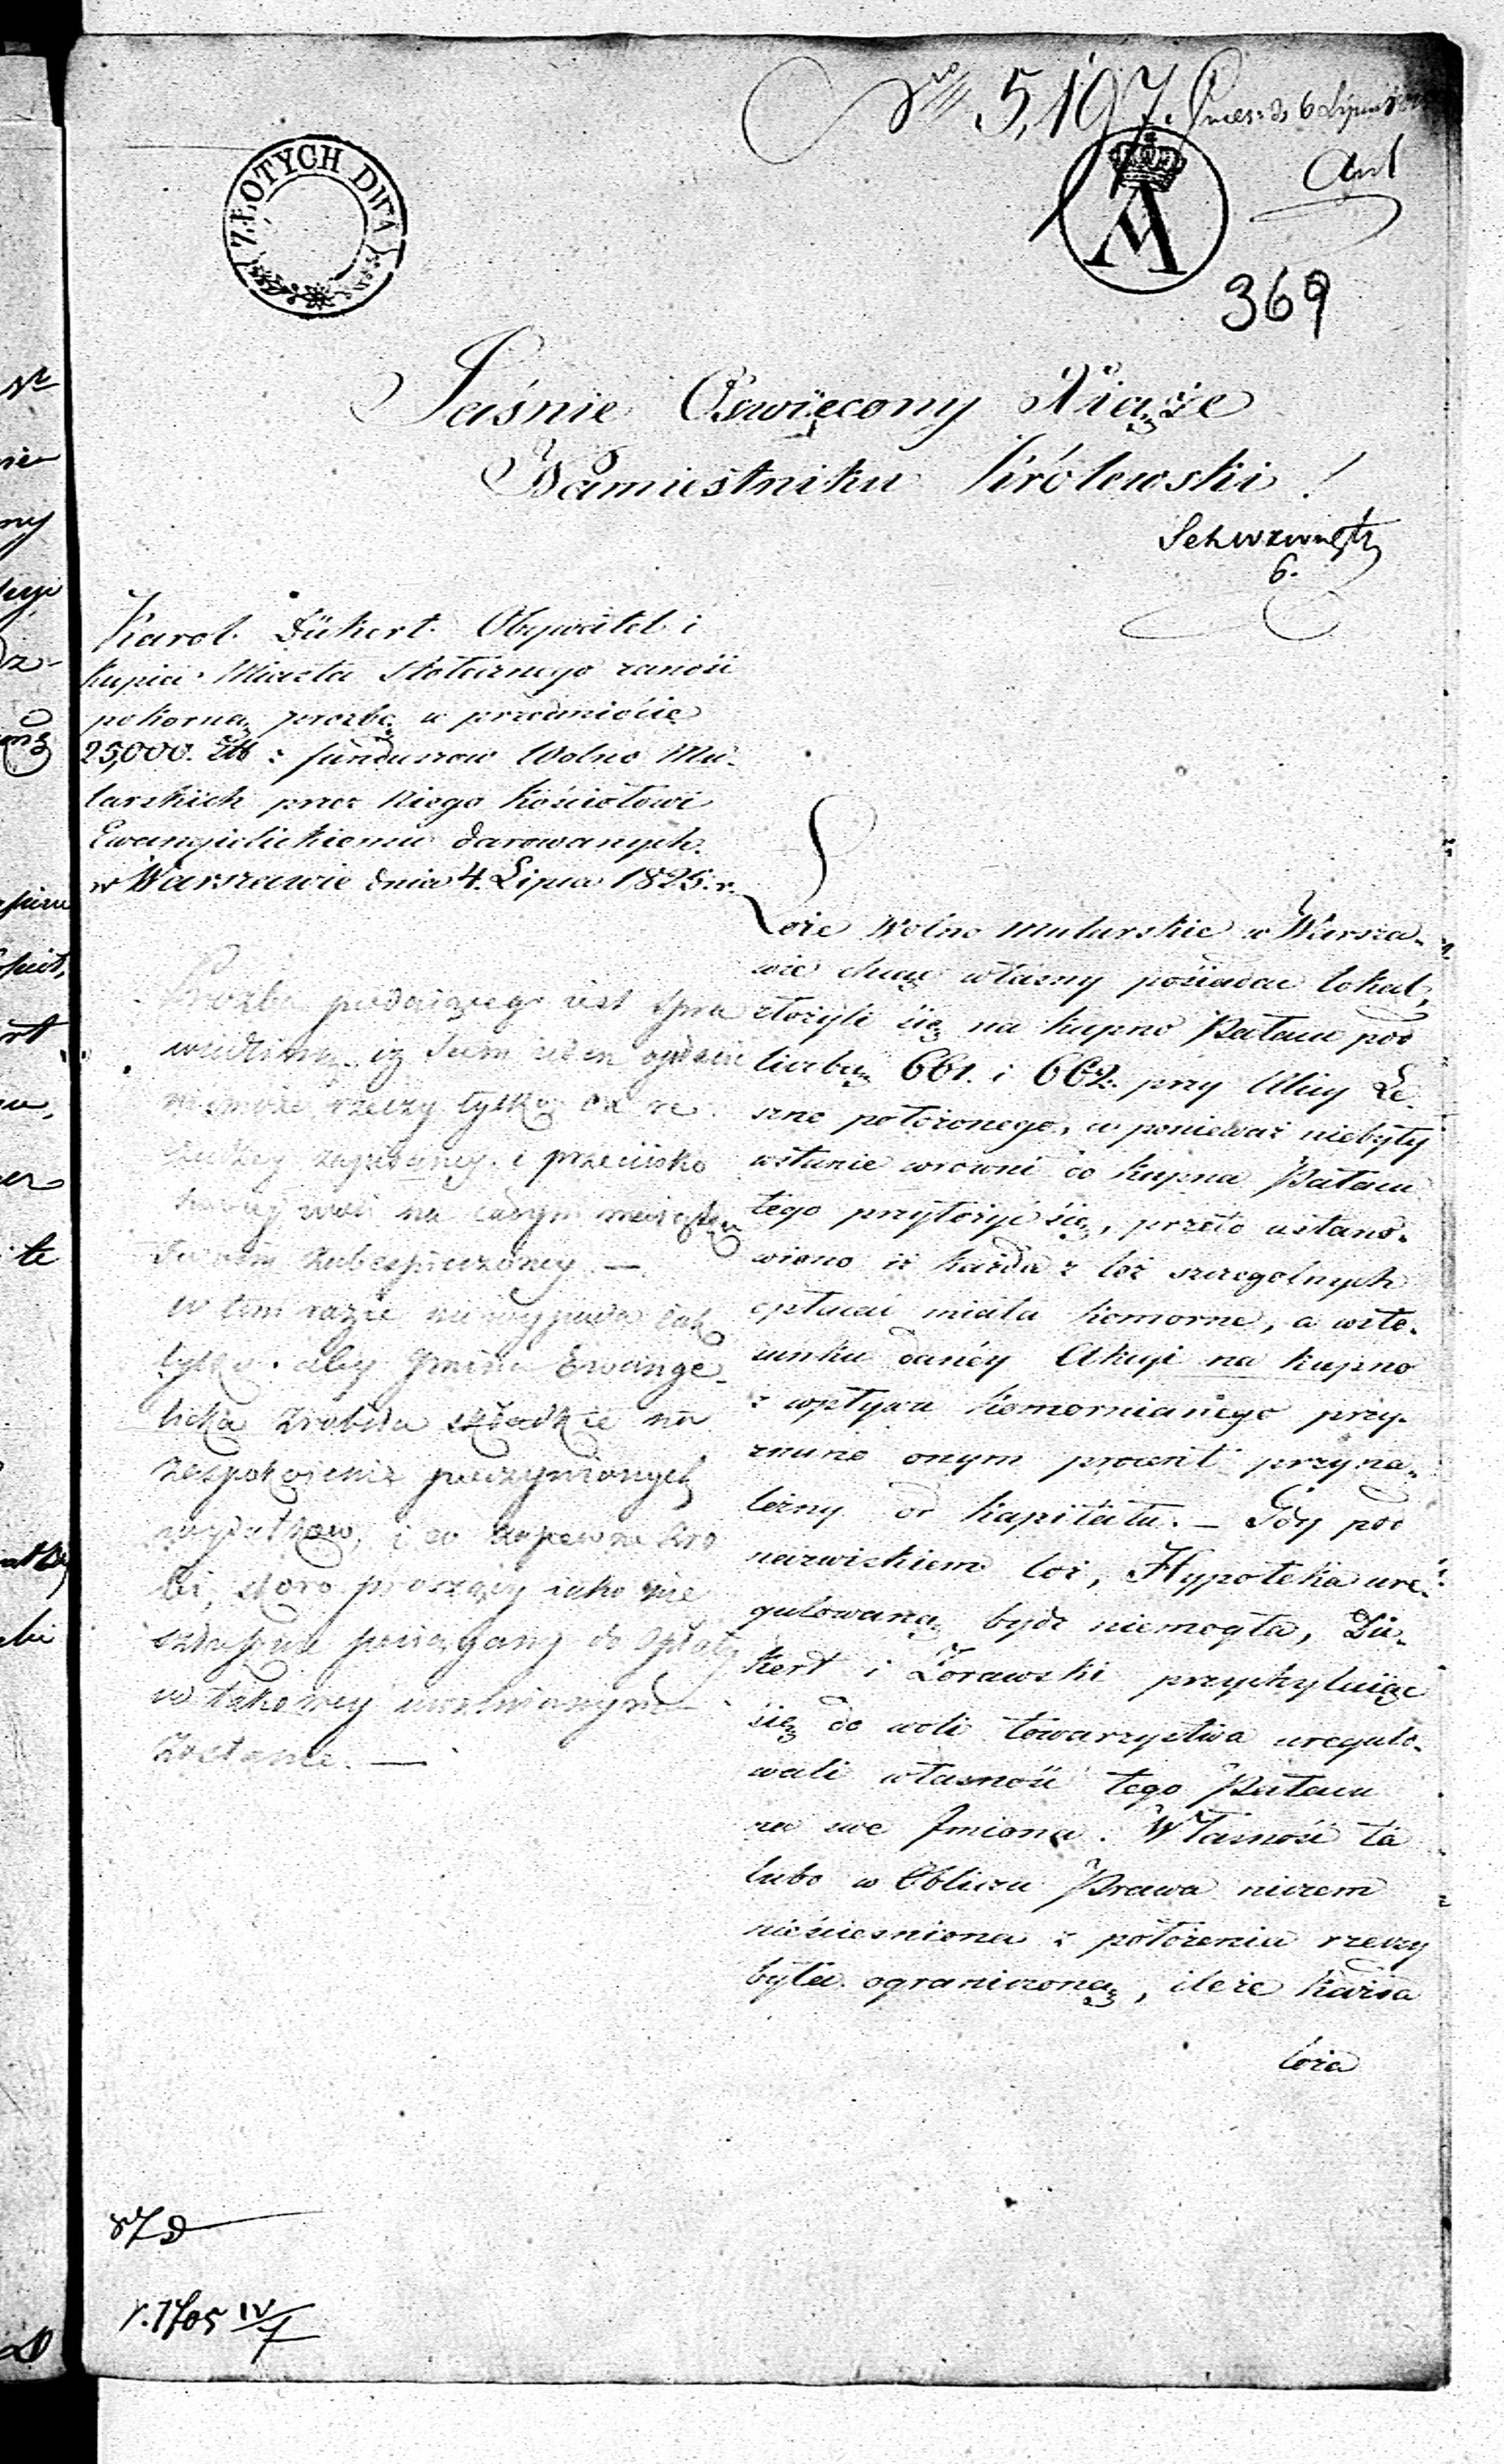 No 5,197. Prze: d. 6 Lipca
ZŁOTYCH DWA
A
369
Jaśnie Oświęcony Xiąże
Namiestniku Królewski!
6.
Karol Dükert Obywatel i
kupiec Miasta Stołecznego zanosi
pokorną prozbę w przedmiocie
25,000. Złt: funduszow Wolno Mu-
larskich przez Niego Kościołowi
Ewangielickiemu darowanych.
w Warszawie dnia 4. Lipca 1825. r.
Prozba podaiącego iest spra
wiedliwą, iż Sam ieden
niemoże, rzeczy tylko
zapisaney i przeciwko
na całym maiątku
Swoim zabespieczoney —
W tem razie niewypada iak
tylko aby Gmina Ewange-
licka zrobiła składkie na
zaspokoienie poczynionych
wydatkow, i co zapewne zro
bi, skoro proszący iako nie
pociągany do opłaty
w takowey uwolnionym
zostanie. —
Loże Wolno Mularskie w Warsza-
wie chcąc własny posiadać lokal,
złożyli się na kupno Pałacu pod
liczbą 661. i 662. przy Ulicy Le-
szno położonego, a ponieważ niebyły
wstanie wrowni do kupna Pałacu
tego przyłożyć się, przeto ustano-
wiono iż każda z lóż szczegolnych
opłacać miała komorne, a wsto-
sunku danéy Akcyi na kupno
z wpływu komornianego przy-
znano onym procent przyna-
leżny od kapitału. — Gdy pod
nazwiskiem lóż, Hypoteka ure-
gulowaną bydź niemogła, Dü-
kert i Żorawski przychylaiąc
się do woli towarzystwa uregulo-
wali własność tego Pałacu
na swe Jmiona. Własność ta
lubo w Obliczu Prawa niczem
nieściesniona z położenia rzeczy
była ograniczoną, ileże każda
loża
r. 1705 IV/7